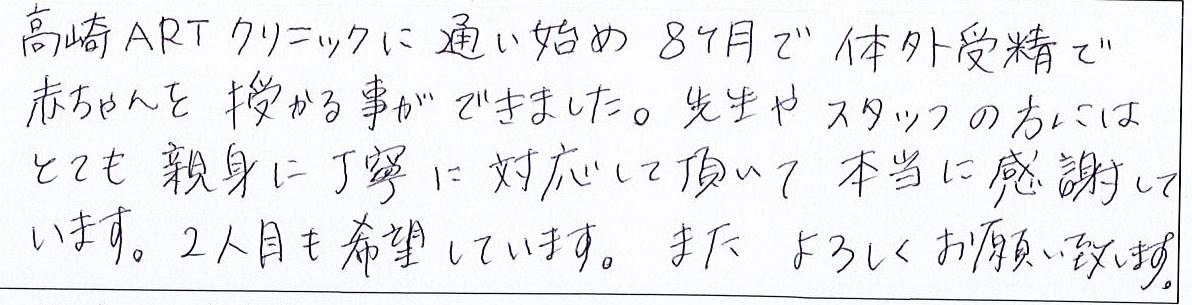 高崎ARTクリニックに通い始め 8ケ月で 体外受精で
赤ちゃんを 授かる事ができました。先生や スタッフの方には
とても 親身に丁寧に対応して頂いて 本当に感謝して
います。2人目も希望しています。また よろしくお願い致します。